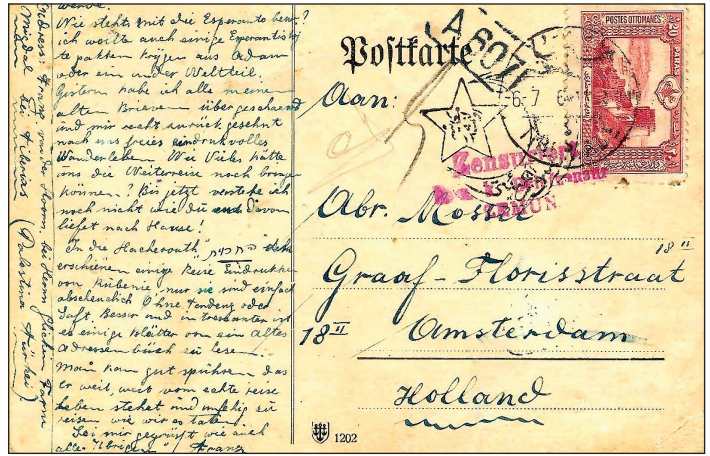 werde.
Wie stehts mit die Esperanto
ich wollte auch einige Esperantis
te pakken krygen aus Adam
oder ein ander Weltteil.
Gistern habe ich alle meine
alten Brieven übergeschend
und mir recht zurück gesehnt
nach uns freies eindruckvolles
Wanderleben. Wie Vieles hätte
uns die Weiterreise noch bringen
können? Bis jetzt verstehe ich
noch nicht wie du davon
liefst nach Hause!
In die Hacherouth
erschienen einige Reise Eindrukken
von Rubenie, nur sie sind einfach
abscheulich Ohne Tendenz oder
Saft. Besser und intressanter ist
es einige Blätter von ein altes
Adressenbuch zu lesen.
Man kann gut spühren das
er weit, weit vom echte reise
leben stehet und unfähig zu
reisen wie wir es taten
Sei mir gegrüsst wie auch
alle "Ubrigen" Franz
Adress: Franz van der Hoorn, bei Herrn Glicken Farm
Migdal bei Tiberias (Palastina Türkei)
Postkarte
A 607
POSTES OTTOMANES
20
PARAS
Aan:
Zensuriert
ZEMUN
Abr. Mossel
18 II
Graaf-Florisstraat
18 II Amsterdam
Holland
1202